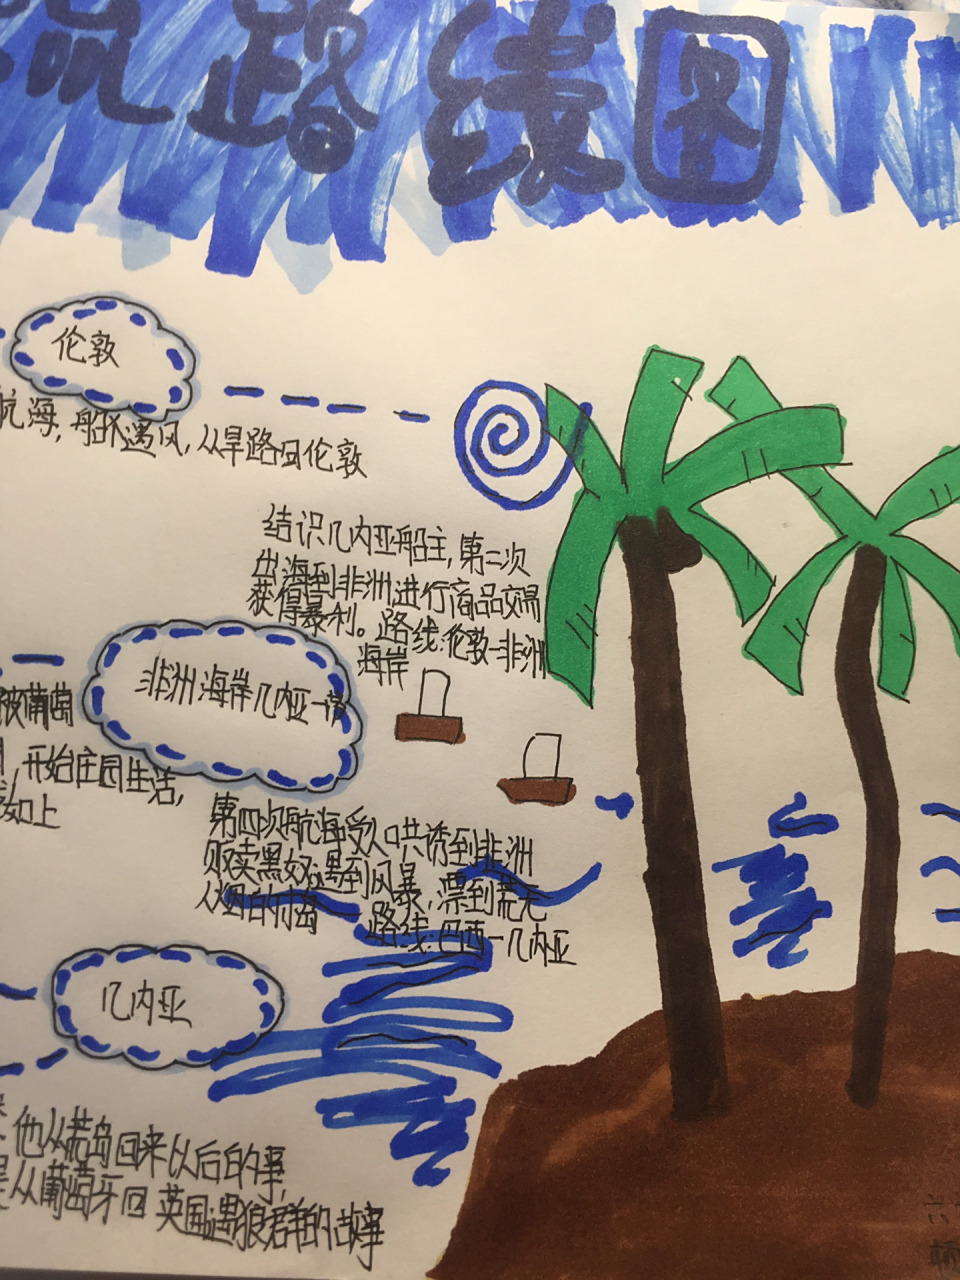 路线图
伦敦
航海,船队遇风,从旱路回伦敦
结识几内亚船主,第二次
出海到非洲进行商品交易
获得暴利。路线:伦敦-非洲
海岸
非洲海岸几内亚一带
被葡萄
,开始庄园生活,
如上
第四次航海受人口哄诱到非洲
贩卖黑奴遇到风暴,漂到荒无
人烟的村岛
路线:巴西-几内亚
几内亚
他从荒岛回来以后的事,
从葡萄牙回英国遇狼群的故事